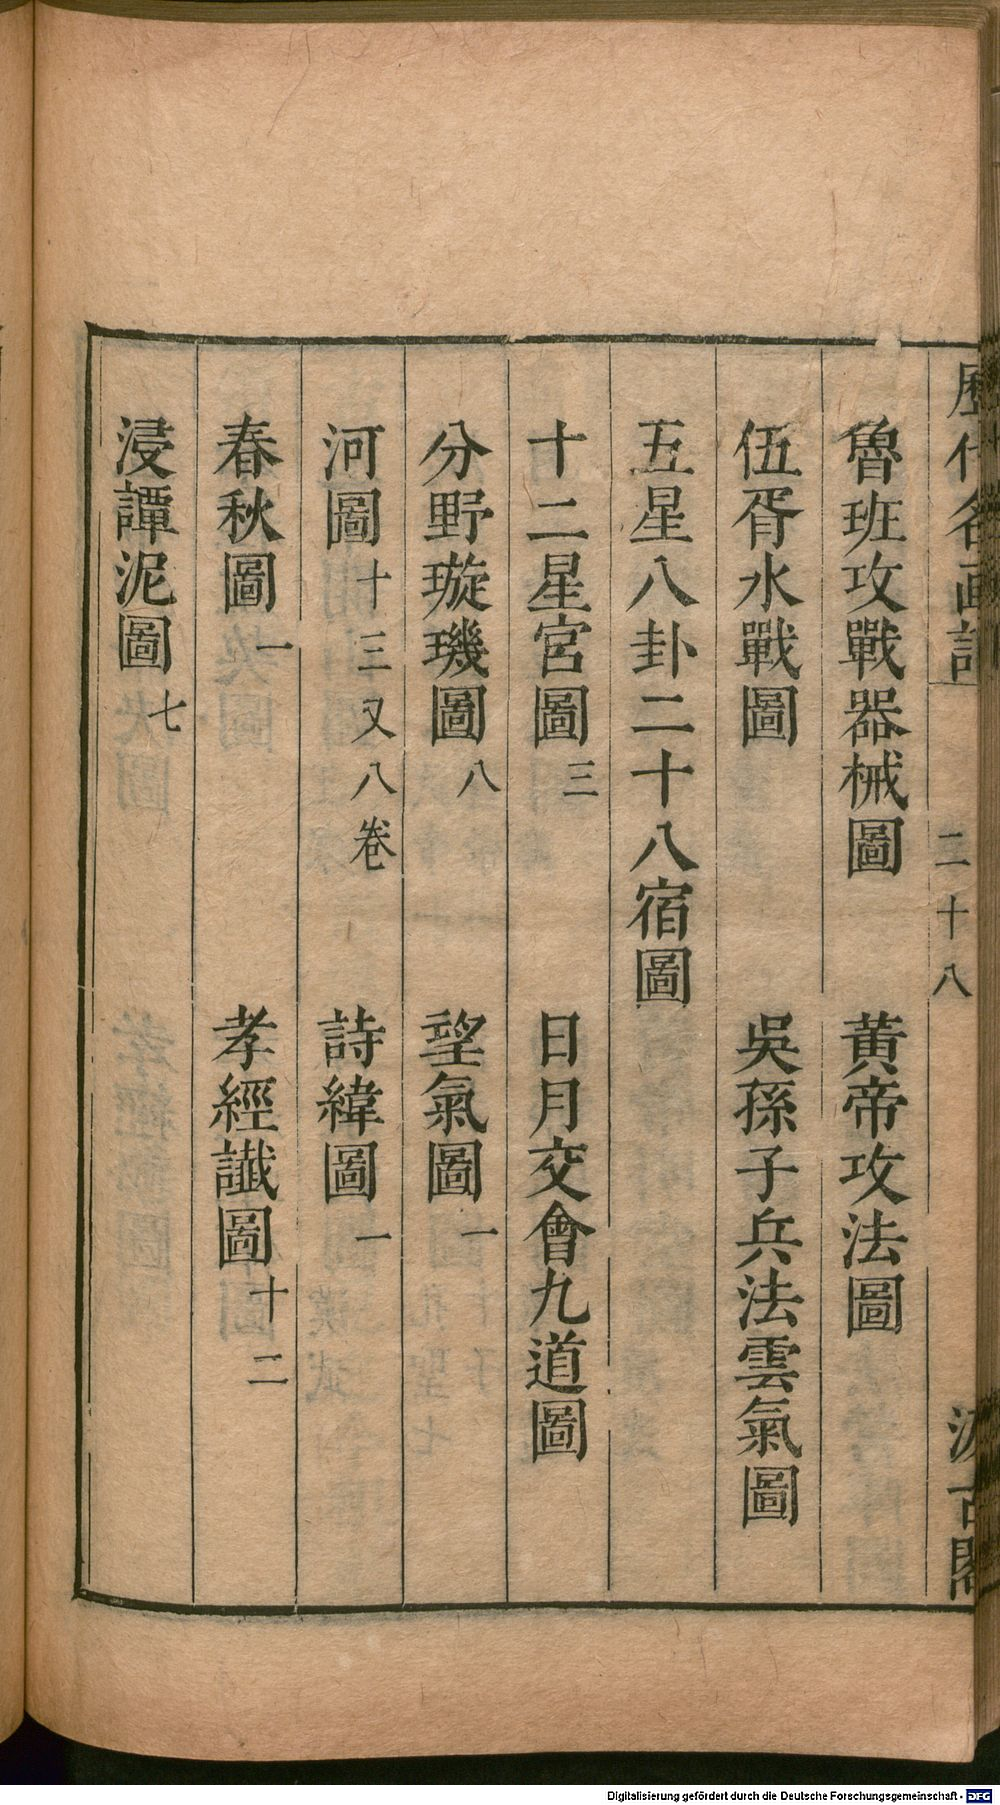 歷代名画記 二十八 汲古閣
魯班攻戰器械圖 黃帝攻法圖
伍胥水戰圖 吳孫子兵法雲氣圖
五星八卦二十八宿圖
十二星宮圖三 日月交會九道圖
分野璇璣圖八 望氣圖一
河圖十三又八卷 詩緯圖一
春秋圖一 孝經讖圖十二
浸譚泥圖七
Digitalisierung gefördert durch die Deutsche Forschungsgemeinschaft - DFG